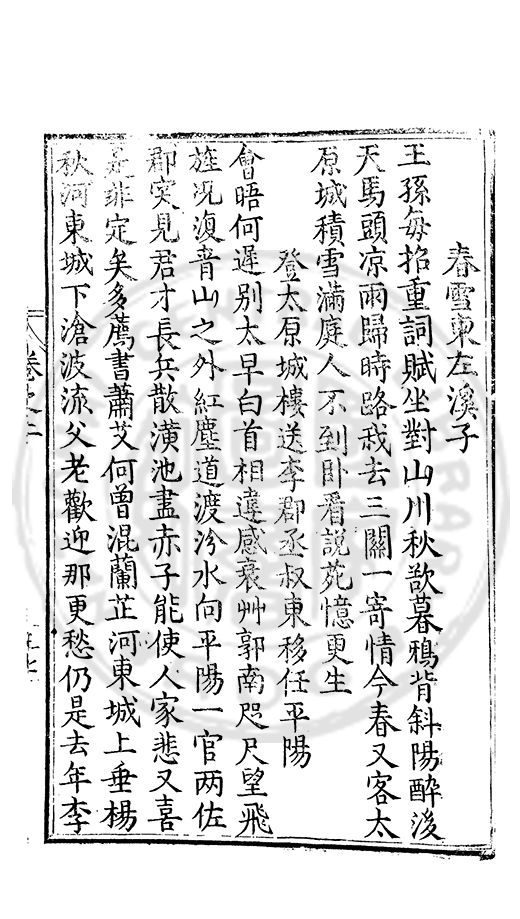 春雪柬左溪子
王孫每招重詞賦坐對山川秋欲暮鴉背斜陽醉後
天馬頭凉雨歸時路我去三關一寄情今春又客太
原城積雪滿庭人不到卧看說苑憶更生
登太原城樓送李郡丞叔東移任平陽
會晤何遲别太早白首相違感衰艸郭南咫尺望飛
旌况復音山之外紅塵道渡汾水向平陽一官两佐
郡实見君才長兵散潢池盡赤子能使人家悲又喜
是非定矣多薦書蕭艾何曾混蘭芷河東城上垂楊
秋河東城下滄波流父老歡迎那更愁仍是去年李
卷之二